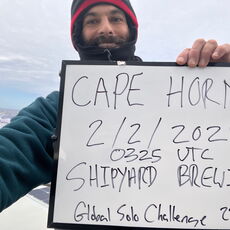 CAPE HORN
2/2/202
0325 UTC
SHIPYARD BREWI
Global Solo Challenge 2